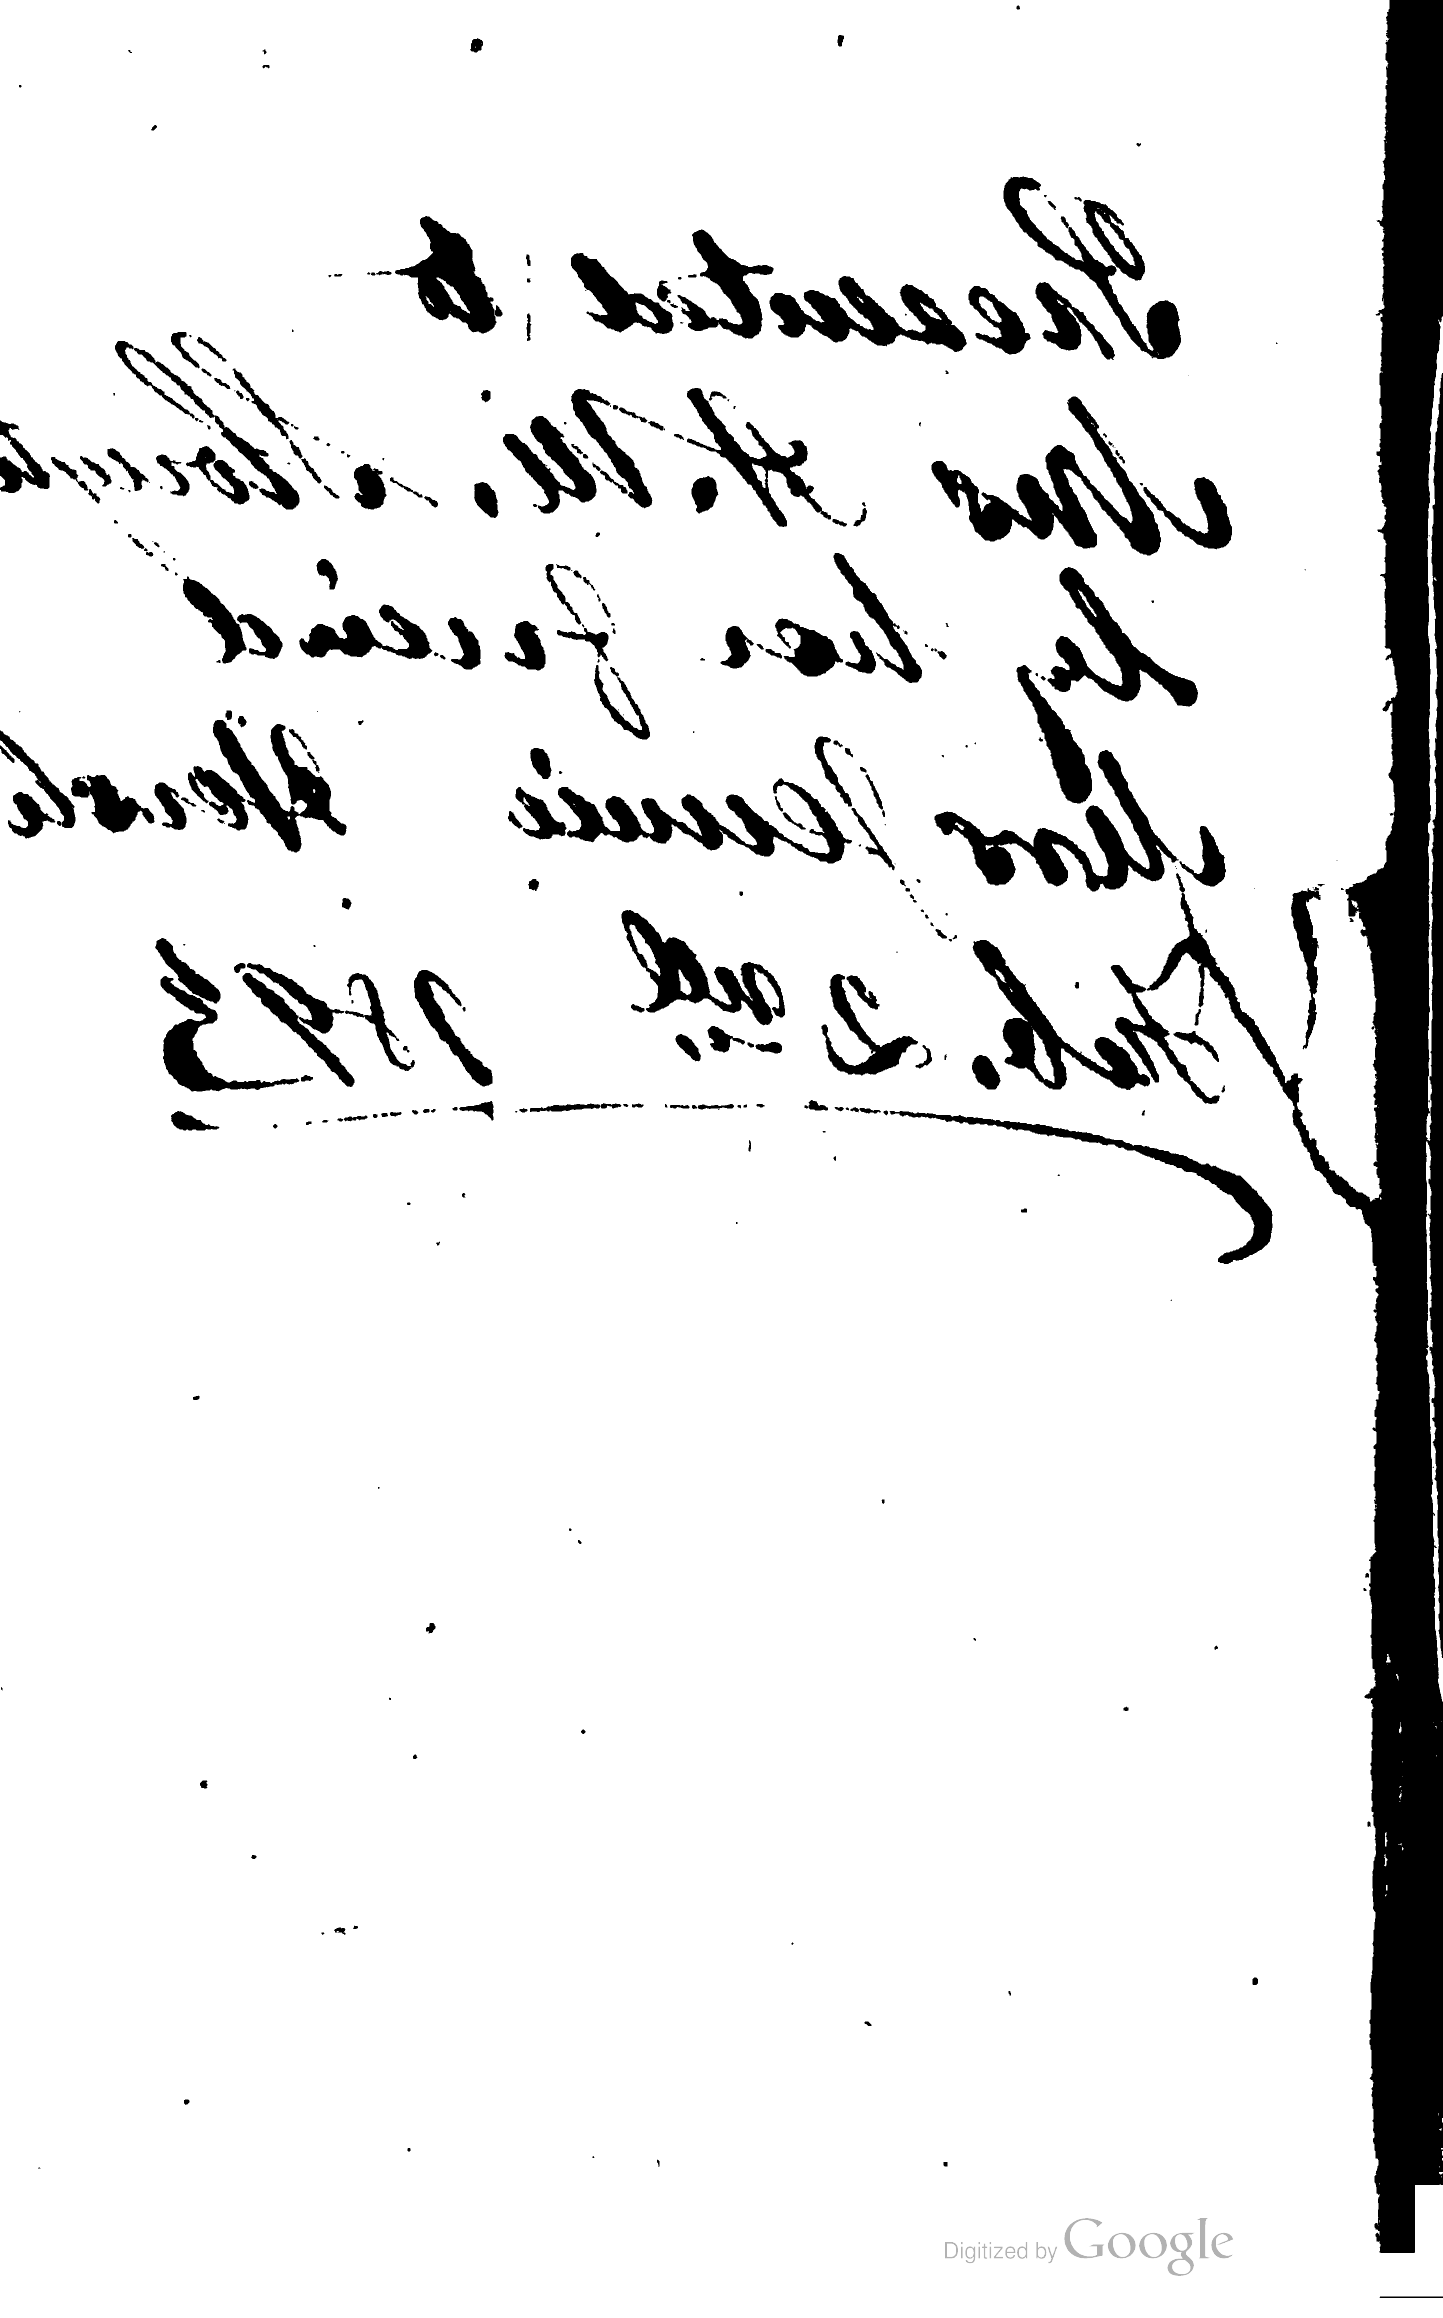 Presented to
Mrs H. M.
by her friend
Mrs Jennie
Feb. 2nd 1893
Digitized by Google